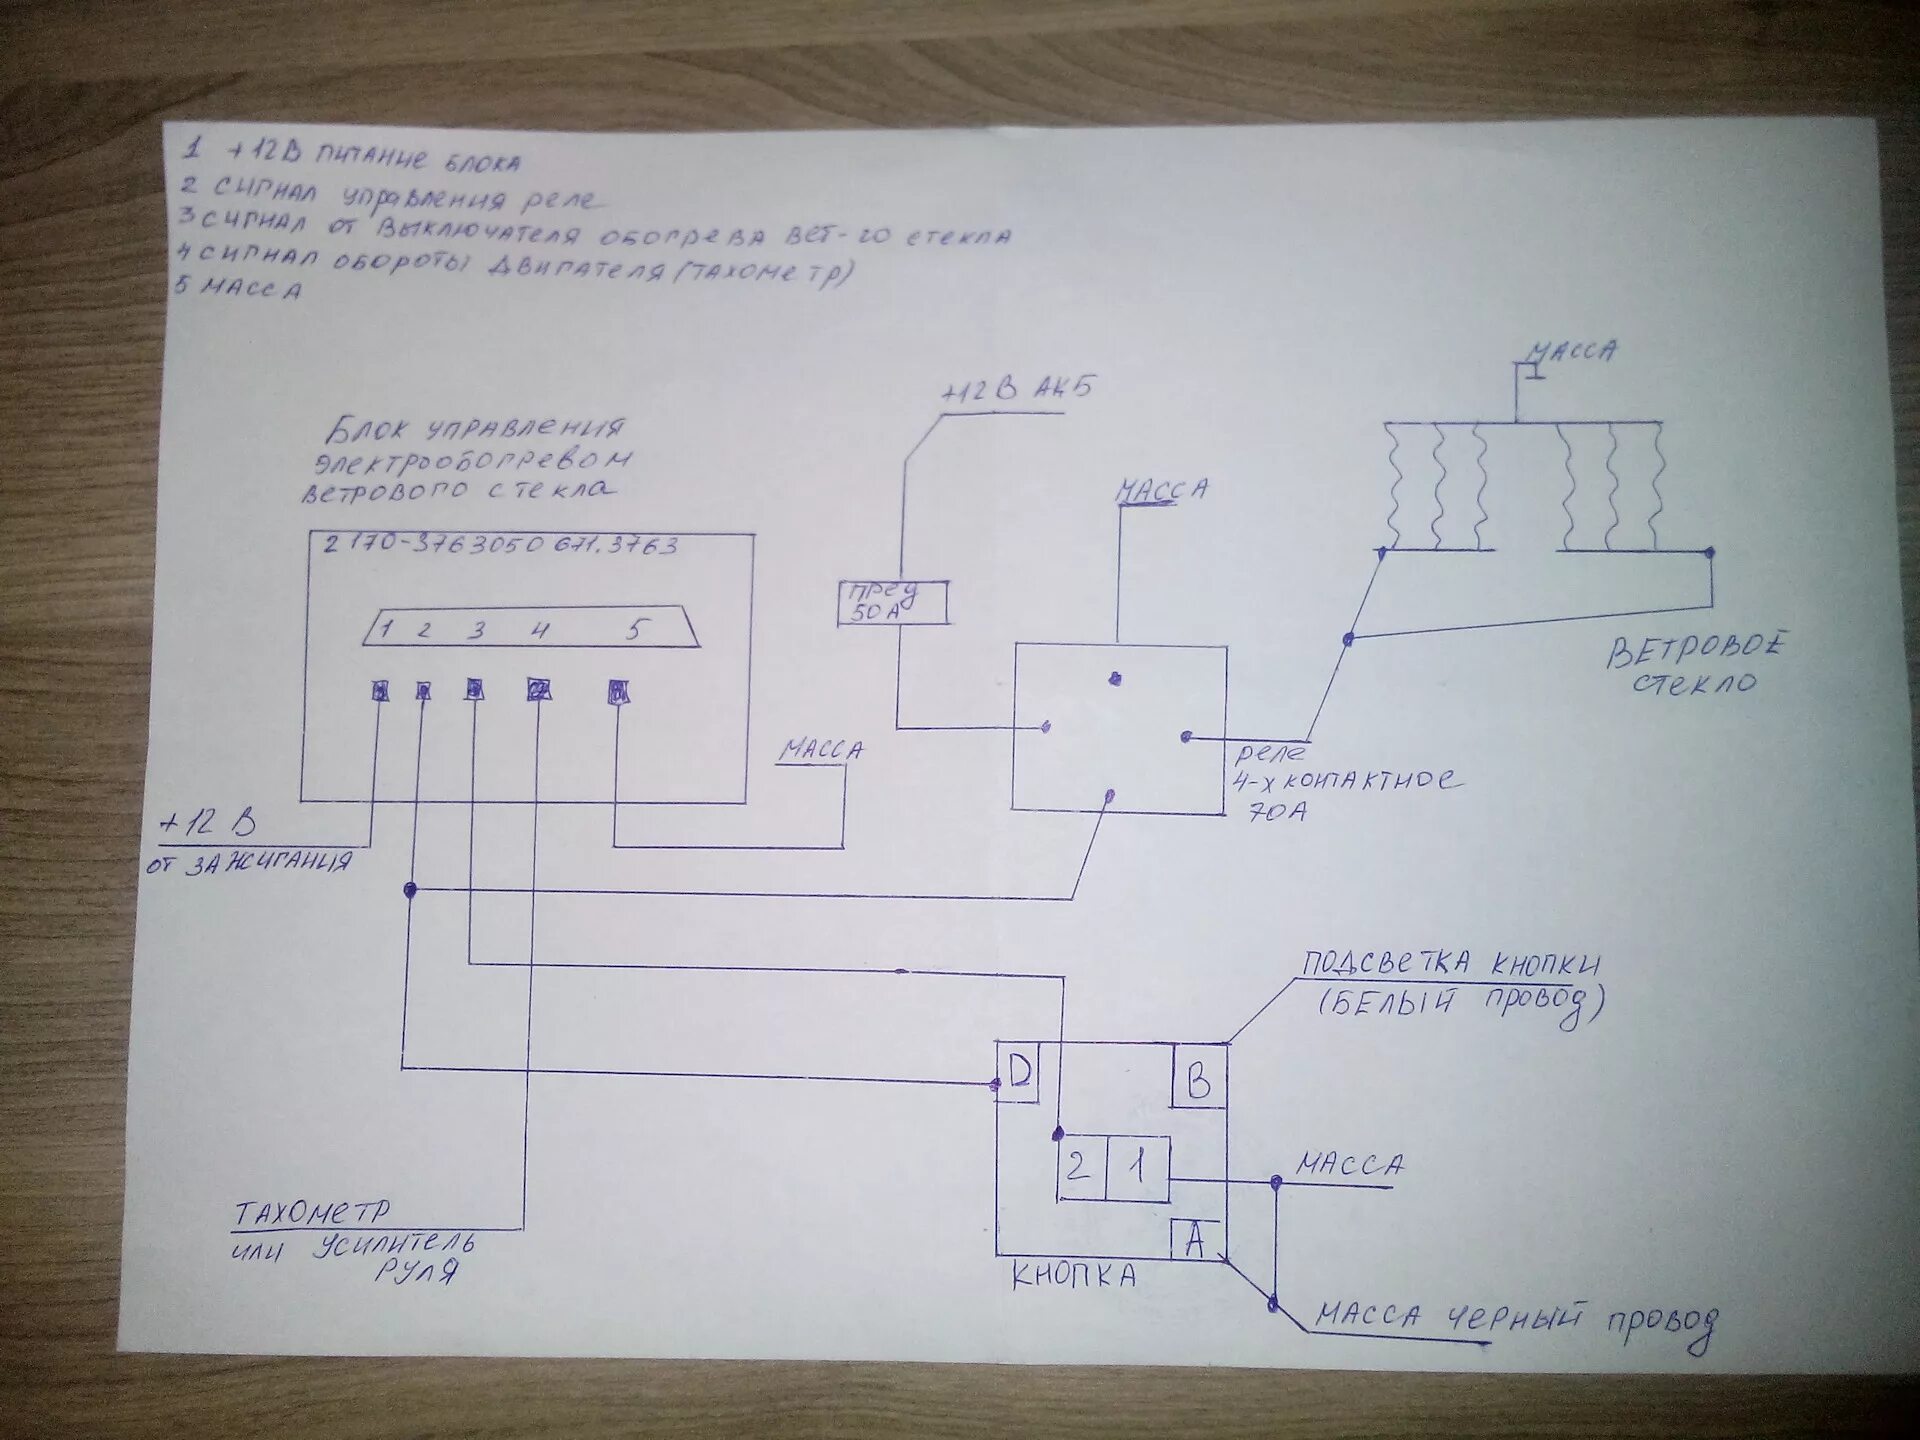 1 +12В ПИТАНИЕ БЛОКА
2 СИГНАЛ УПРАВЛЕНИЯ РЕЛЕ
3 СИГНАЛ ОТ ВЫКЛЮЧАТЕЛЯ ОБОГРЕВА ВЕТ-ГО СТЕКЛА
4 СИГНАЛ ОБОРОТЫ ДВИГАТЕЛЯ (ТАХОМЕТР)
5 МАССА
МАССА
+12В АКБ
БЛОК УПРАВЛЕНИЯ
ЭЛЕКТРООБОГРЕВОМ
ВЕТРОВОГО СТЕКЛА
МАССА
2170-3763050 671.3763
ПРЕД
50А
1 2 3 4 5
ВЕТРОВОЕ
СТЕКЛО
МАССА
РЕЛЕ
4-Х КОНТАКТНОЕ
70А
+12 В
ОТ ЗАЖИГАНИЯ
ПОДСВЕТКА КНОПКИ
(БЕЛЫЙ ПРОВОД)
D
B
2 1
МАССА
ТАХОМЕТР
ИЛИ УСИЛИТЕЛЬ
РУЛЯ
A
КНОПКА
МАССА ЧЕРНЫЙ ПРОВОД